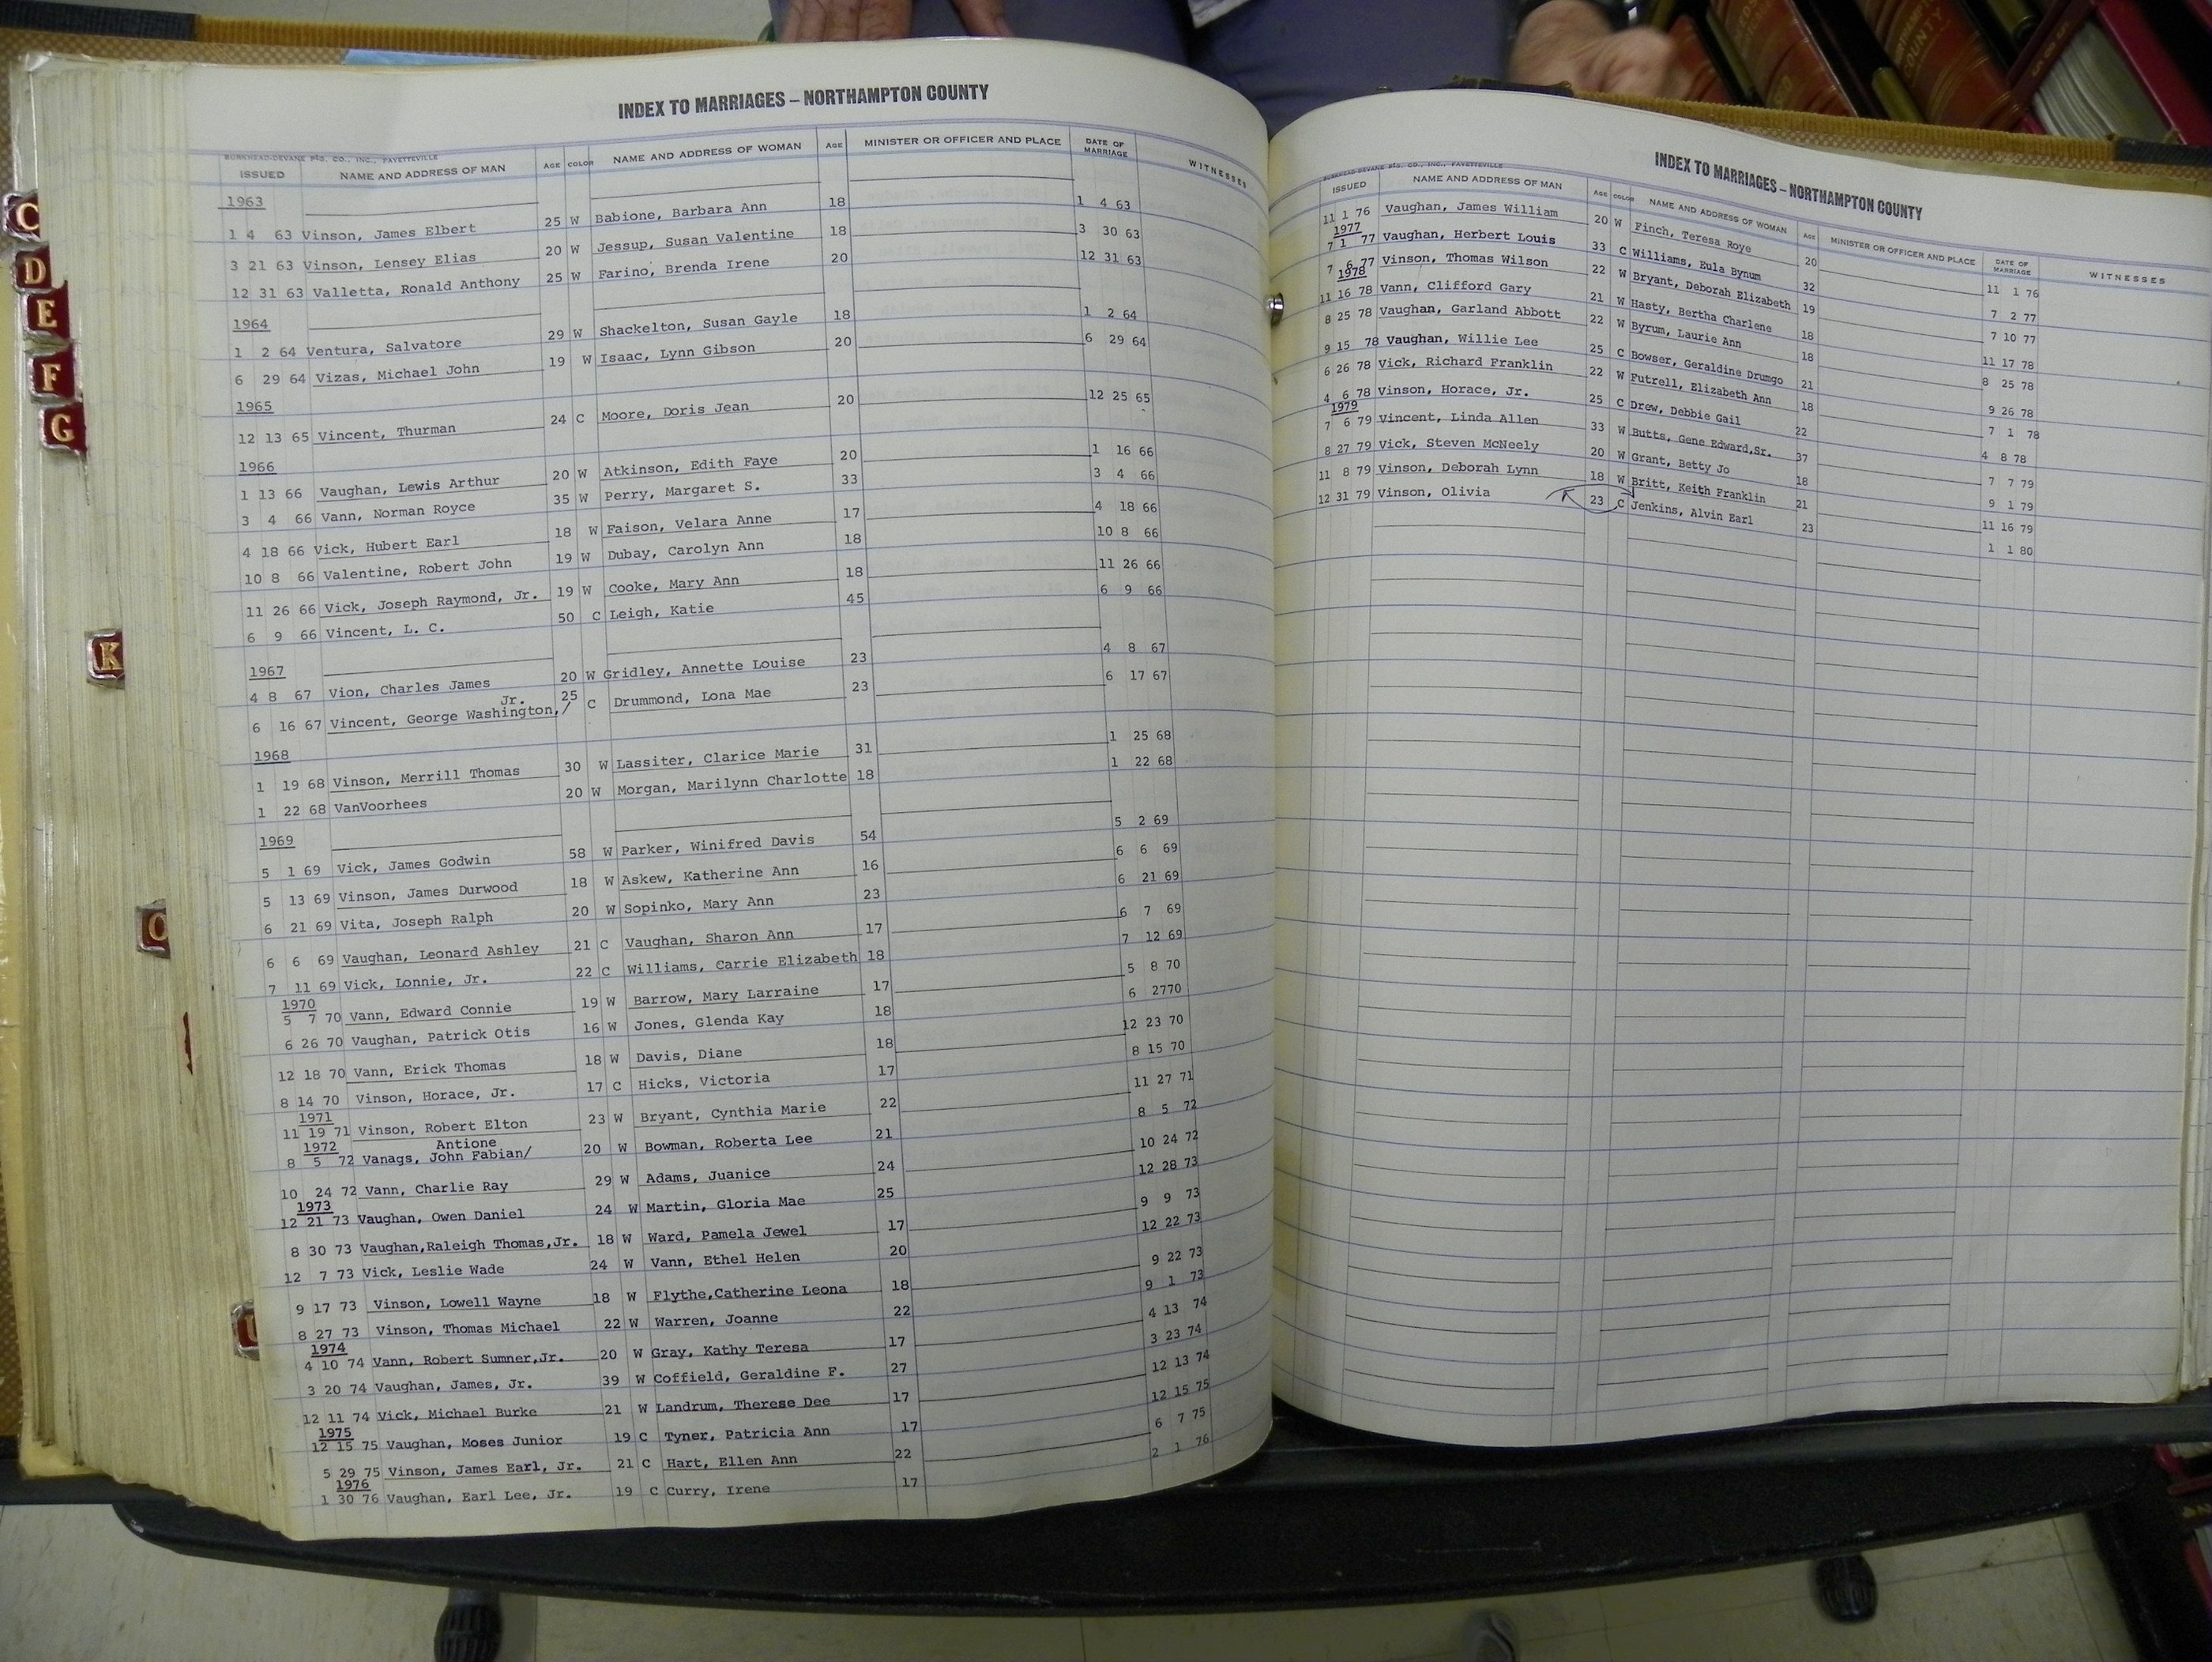 INDEX TO MARRIAGES – NORTHAMPTON COUNTY
BURKHEAD-DEVANE PTG. CO., INC., FAYETTEVILLE
ISSUED NAME AND ADDRESS OF MAN AGE COLOR NAME AND ADDRESS OF WOMAN AGE MINISTER OR OFFICER AND PLACE DATE OF MARRIAGE WITNESSES
1963
1 4 63 Vinson, James Elbert 25 W Babione, Barbara Ann 18 1 4 63
3 21 63 Vinson, Lensey Elias 20 W Jessup, Susan Valentine 18 3 30 63
12 31 63 Valletta, Ronald Anthony 25 W Farino, Brenda Irene 20 12 31 63
1964
1 2 64 Ventura, Salvatore 29 W Shackelton, Susan Gayle 18 1 2 64
6 29 64 Vizas, Michael John 19 W Isaac, Lynn Gibson 20 6 29 64
1965
12 13 65 Vincent, Thurman 24 C Moore, Doris Jean 20 12 25 65
1966
1 13 66 Vaughan, Lewis Arthur 20 W Atkinson, Edith Faye 20 1 16 66
3 4 66 Vann, Norman Royce 35 W Perry, Margaret S. 33 3 4 66
4 18 66 Vick, Hubert Earl 18 W Faison, Velara Anne 17 4 18 66
10 8 66 Valentine, Robert John 19 W Dubay, Carolyn Ann 18 10 8 66
11 26 66 Vick, Joseph Raymond, Jr. 19 W Cooke, Mary Ann 18 11 26 66
6 9 66 Vincent, L. C. 50 C Leigh, Katie 45 6 9 66
1967
4 8 67 Vion, Charles James 20 W Gridley, Annette Louise 23 4 8 67
Jr.
6 16 67 Vincent, George Washington,/ 25 C Drummond, Lona Mae 23 6 17 67
1968
1 19 68 Vinson, Merrill Thomas 30 W Lassiter, Clarice Marie 31 1 25 68
1 22 68 VanVoorhees 20 W Morgan, Marilynn Charlotte 18 1 22 68
1969
5 1 69 Vick, James Godwin 58 W Parker, Winifred Davis 54 5 2 69
5 13 69 Vinson, James Durwood 18 W Askew, Katherine Ann 16 6 6 69
6 21 69 Vita, Joseph Ralph 20 W Sopinko, Mary Ann 23 6 21 69
6 6 69 Vaughan, Leonard Ashley 21 C Vaughan, Sharon Ann 17 6 7 69
7 11 69 Vick, Lonnie, Jr. 22 C Williams, Carrie Elizabeth 18 7 12 69
1970
5 7 70 Vann, Edward Connie 19 W Barrow, Mary Larraine 17 5 8 70
6 26 70 Vaughan, Patrick Otis 16 W Jones, Glenda Kay 18 6 2770
12 18 70 Vann, Erick Thomas 18 W Davis, Diane 18 12 23 70
8 14 70 Vinson, Horace, Jr. 17 C Hicks, Victoria 17 8 15 70
1971
11 19 71 Vinson, Robert Elton 23 W Bryant, Cynthia Marie 22 11 27 71
1972 Antione
8 5 72 Vanags, John Fabian/ 20 W Bowman, Roberta Lee 21 8 5 72
10 24 72 Vann, Charlie Ray 29 W Adams, Juanice 24 10 24 72
1973
12 21 73 Vaughan, Owen Daniel 24 W Martin, Gloria Mae 25 12 28 73
8 30 73 Vaughan,Raleigh Thomas,Jr. 18 W Ward, Pamela Jewel 17 9 9 73
12 7 73 Vick, Leslie Wade 24 W Vann, Ethel Helen 20 12 22 73
9 17 73 Vinson, Lowell Wayne 18 W Flythe,Catherine Leona 18 9 22 73
8 27 73 Vinson, Thomas Michael 22 W Warren, Joanne 22 9 1 73
1974
4 10 74 Vann, Robert Sumner,Jr. 20 W Gray, Kathy Teresa 17 4 13 74
3 20 74 Vaughan, James, Jr. 39 W Coffield, Geraldine F. 27 3 23 74
12 11 74 Vick, Michael Burke 21 W Landrum, Therese Dee 17 12 13 74
1975
12 15 75 Vaughan, Moses Junior 19 C Tyner, Patricia Ann 17 12 15 75
5 29 75 Vinson, James Earl, Jr. 21 C Hart, Ellen Ann 22 6 7 75
1976
1 30 76 Vaughan, Earl Lee, Jr. 19 C Curry, Irene 17 2 1 76
INDEX TO MARRIAGES – NORTHAMPTON COUNTY
BURKHEAD-DEVANE PTG. CO., INC., FAYETTEVILLE
ISSUED NAME AND ADDRESS OF MAN AGE COLOR NAME AND ADDRESS OF WOMAN AGE MINISTER OR OFFICER AND PLACE DATE OF MARRIAGE WITNESSES
11 1 76 Vaughan, James William 20 W Finch, Teresa Roye 20 11 1 76
1977
7 1 77 Vaughan, Herbert Louis 33 C Williams, Eula Bynum 32 7 2 77
7 6 77 Vinson, Thomas Wilson 22 W Bryant, Deborah Elizabeth 19 7 10 77
1978
11 16 78 Vann, Clifford Gary 21 W Hasty, Bertha Charlene 18 11 17 78
8 25 78 Vaughan, Garland Abbott 22 W Byrum, Laurie Ann 18 8 25 78
9 15 78 Vaughan, Willie Lee 25 C Bowser, Geraldine Drumgo 21 9 26 78
6 26 78 Vick, Richard Franklin 22 W Futrell, Elizabeth Ann 18 7 1 78
4 6 78 Vinson, Horace, Jr. 25 C Drew, Debbie Gail 22 4 8 78
1979
7 6 79 Vincent, Linda Allen 33 W Butts, Gene Edward,Sr. 37 7 7 79
8 27 79 Vick, Steven McNeely 20 W Grant, Betty Jo 18 9 1 79
11 8 79 Vinson, Deborah Lynn 18 W Britt, Keith Franklin 21 11 16 79
12 31 79 Vinson, Olivia 23 C Jenkins, Alvin Earl 23 1 1 80
C
D
E
F
G
K
O
U
NORTHAMPTON
COUNTY